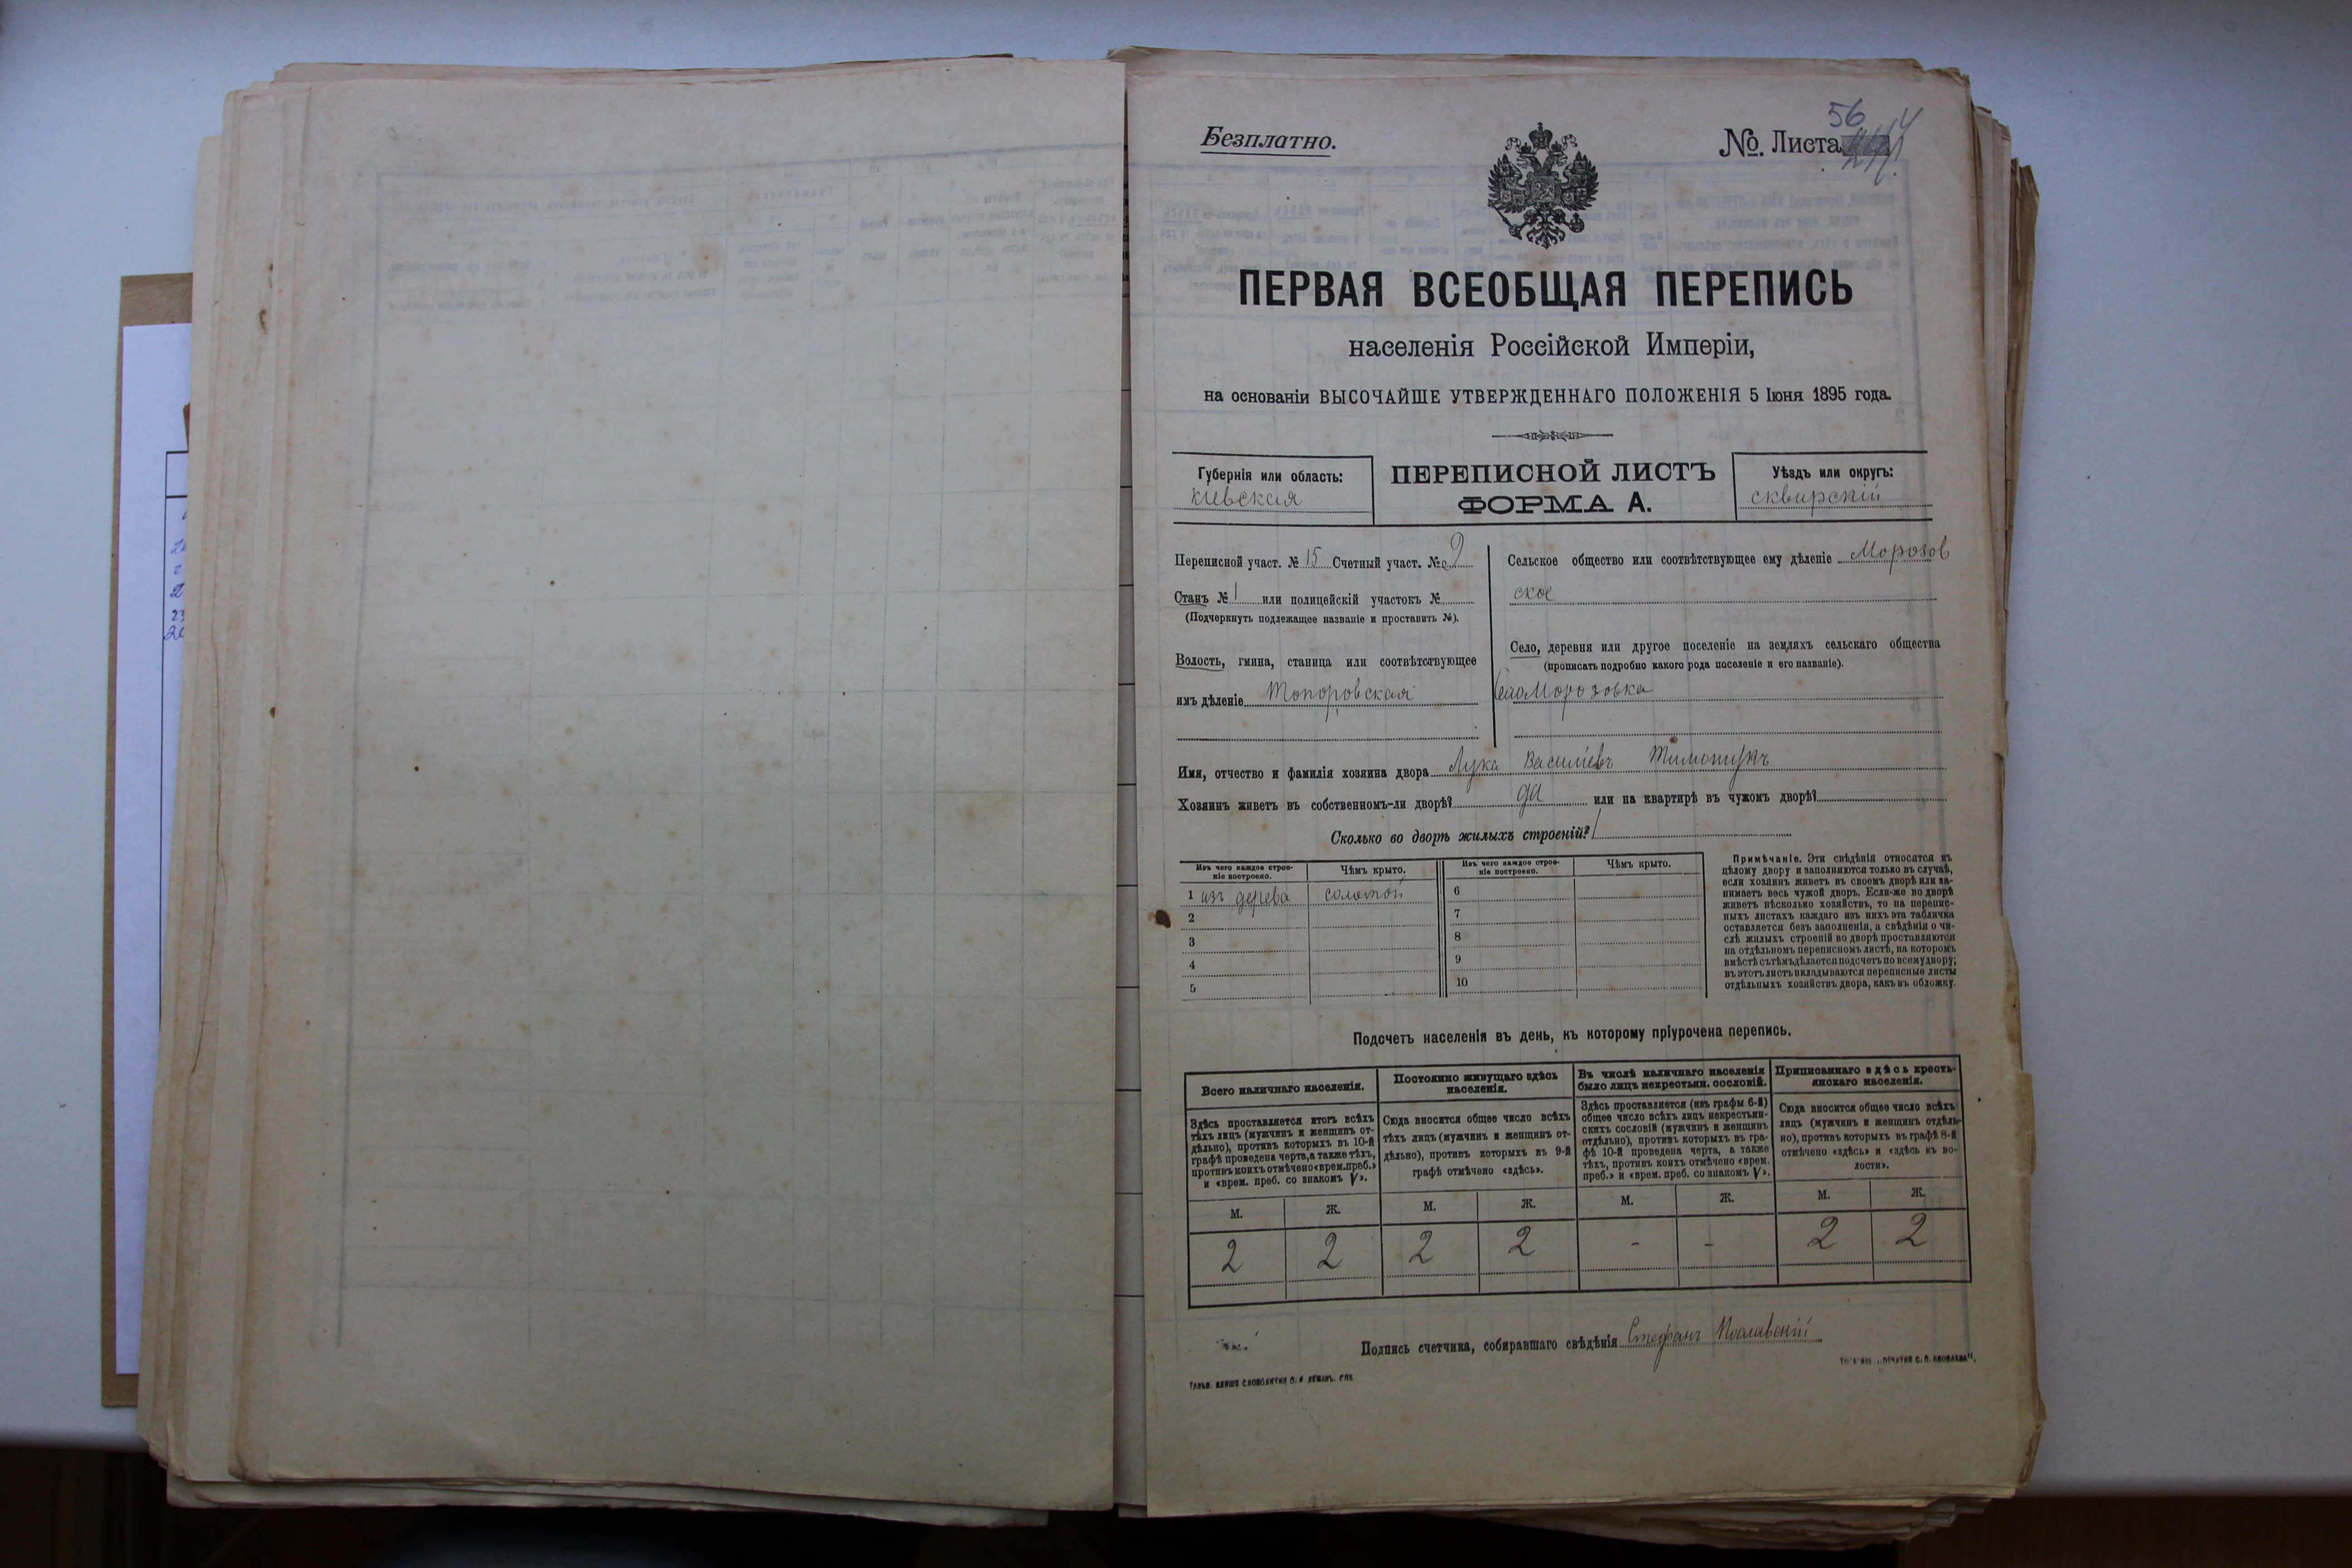 56
Безплатно.
№. Листа
ПЕРВАЯ ВСЕОБЩАЯ ПЕРЕПИСЬ
населенія Россійской Имперіи,
на основаніи ВЫСОЧАЙШЕ УТВЕРЖДЕННАГО ПОЛОЖЕНІЯ 5 Іюня 1895 года.
Губернія или область:
киевская
ПЕРЕПИСНОЙ ЛИСТЪ
ФОРМА А.
Уѣздъ или округъ:
сквирскій
Переписной участ. № 15 Счетный участ. № 9
Станъ № 1 или полицейскій участокъ №
(Подчеркнуть подлежащее названіе и проставить №).
Волость, гмина, станица или соотвѣтствующее
имъ дѣленіе Топоровская
Сельское общество или соотвѣтствующее ему дѣленіе Морозов
ское
Село, деревня или другое поселеніе на земляхъ сельскаго общества
(прописать подробно какого рода поселеніе и его названіе).
Село Морозовка
Имя, отчество и фамилія хозяина двора Лука Василіевъ Тимошукъ
Хозяинъ живетъ въ собственномъ-ли дворѣ? да или на квартирѣ въ чужомъ дворѣ?
Сколько во дворѣ жилыхъ строеній? 1
Изъ чего каждое строе-
ніе построено.
Чѣмъ крыто.
Изъ чего каждое строе-
ніе построено.
Чѣмъ крыто.
1 изъ дерева соломой 6
2 7
3 8
4 9
5 10
Примѣчаніе. Эти свѣдѣнія относятся къ
цѣлому двору и заполняются только въ случаѣ,
если хозяинъ живетъ въ своемъ дворѣ или за-
нимаетъ весь чужой дворъ. Если-же во дворѣ
живетъ нѣсколько хозяйствъ, то на перепис-
ныхъ листахъ каждаго изъ нихъ эта табличка
оставляется безъ заполненія, а свѣдѣнія о чи-
слѣ жилыхъ строеній во дворѣ проставляются
на отдѣльномъ переписномъ листѣ, на которомъ
вмѣстѣ съ тѣмъ дѣлается подсчетъ по всему двору;
въ этотъ листъ вкладываются переписные листы
отдѣльныхъ хозяйствъ двора, какъ въ обложку.
Подсчетъ населенія въ день, къ которому пріурочена перепись.
Всего наличнаго населенія.
Здѣсь проставляется итогъ всѣхъ
тѣхъ лицъ (мужчинъ и женщинъ от-
дѣльно), противъ которыхъ въ 10-й
графѣ проведена черта, а также тѣхъ,
противъ коихъ отмѣчено «врем. преб.»
и «врем. преб. со знакомъ V».
Постоянно живущаго здѣсь
населенія.
Сюда вносится общее число всѣхъ
тѣхъ лицъ (мужчинъ и женщинъ от-
дѣльно), противъ которыхъ въ 9-й
графѣ отмѣчено «здѣсь».
Въ числѣ наличнаго населенія
было лицъ некрестьян. сословій.
Здѣсь проставляется (изъ графы 6-й)
общее число всѣхъ лицъ некрестьян-
скихъ сословій (мужчинъ и женщинъ
отдѣльно), противъ которыхъ въ гра-
фѣ 10-й проведена черта, а также
тѣхъ, противъ коихъ отмѣчено «врем.
преб.» и «врем. преб. со знакомъ V».
Приписаннаго здѣсь кресть-
янскаго населенія.
Сюда вносится общее число всѣхъ
лицъ (мужчинъ и женщинъ отдѣль-
но), противъ которыхъ въ графѣ 8-й
отмѣчено «здѣсь» и «здѣсь въ во-
лости».
М. Ж. М. Ж. М. Ж. М. Ж.
2 2 2 2 - - 2 2
Подпись счетчика, собиравшаго свѣдѣнія Стефанъ